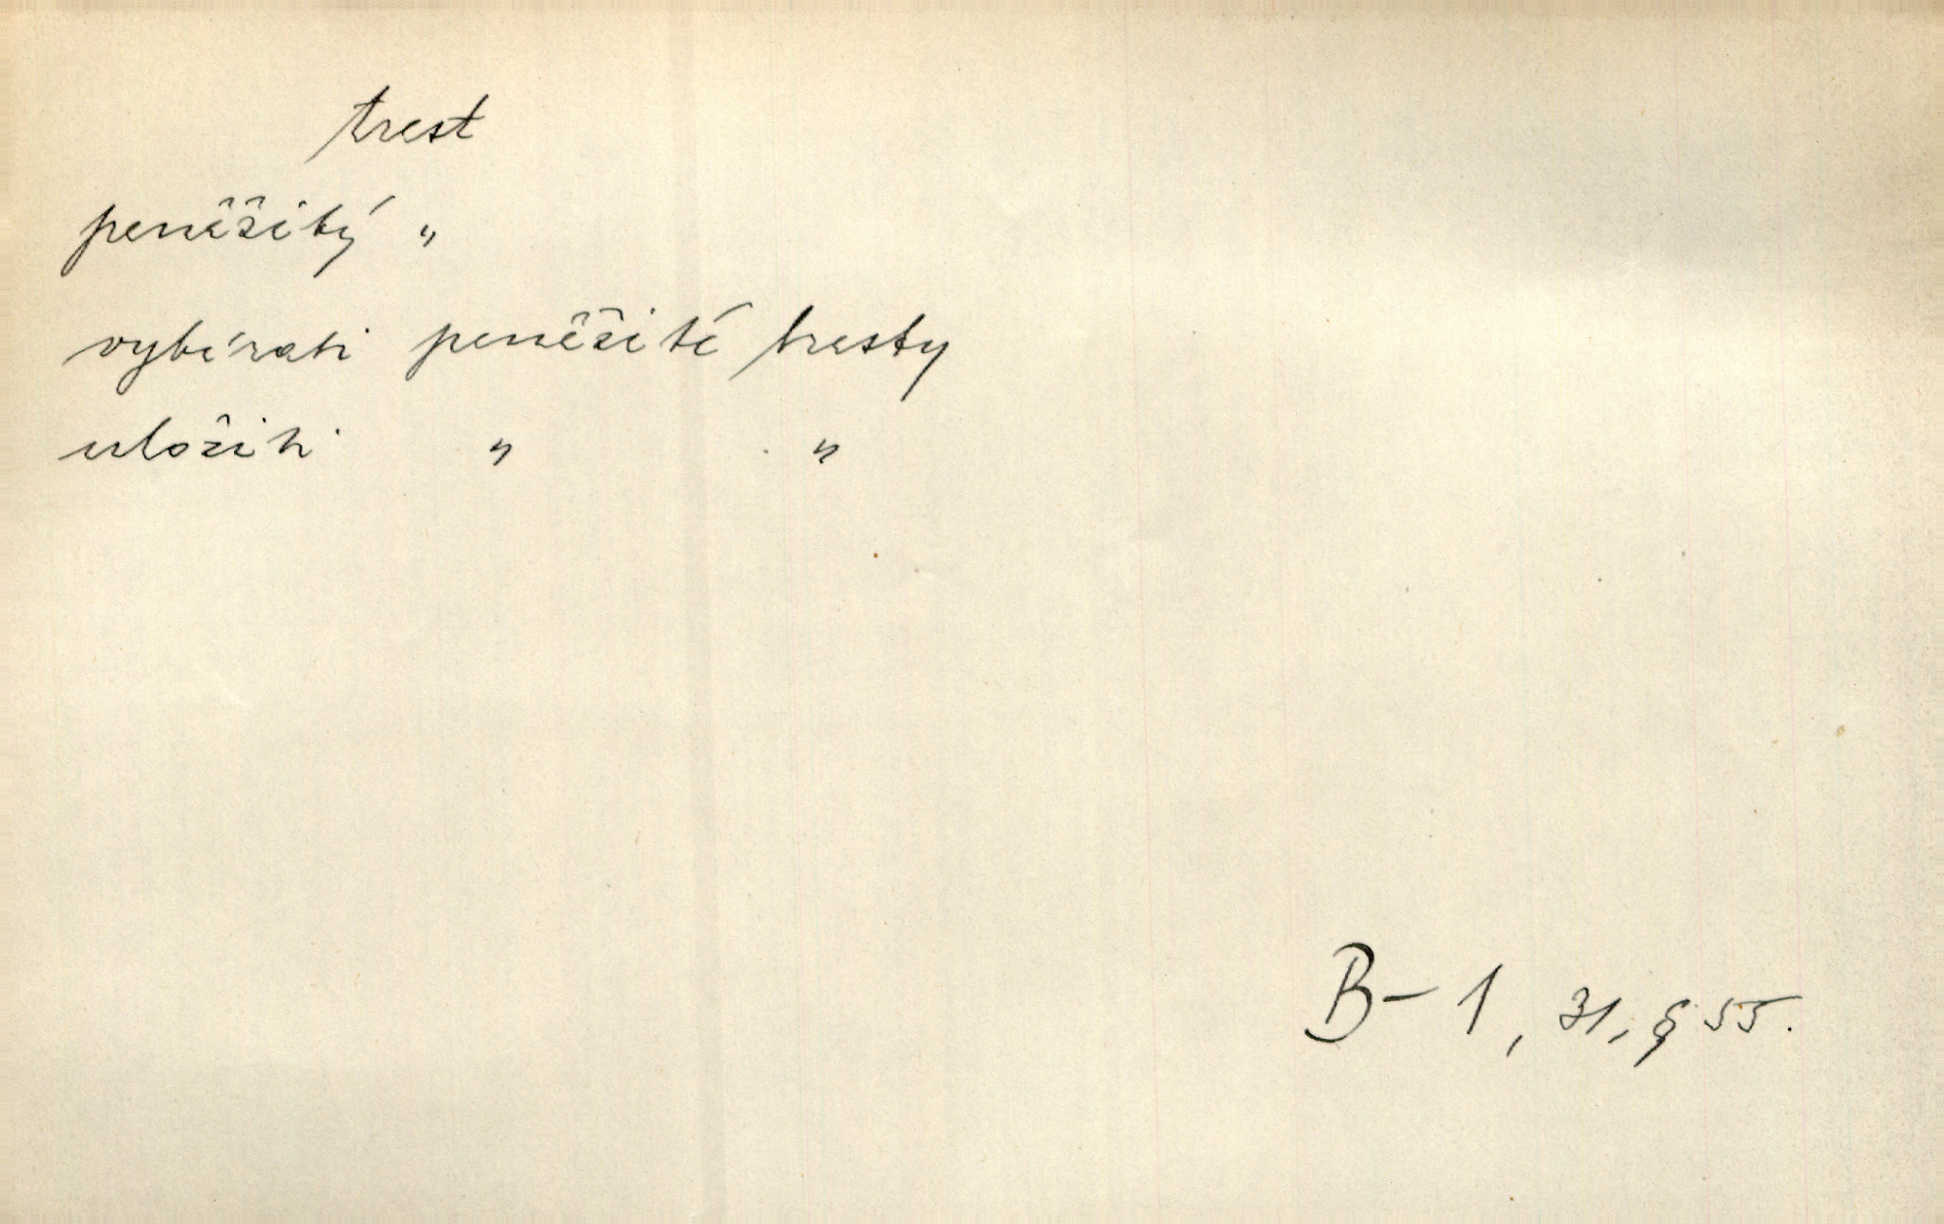 trest
peněžitý "
vybírati peněžité tresty
uložiti " "
B-1, 31, § 55.